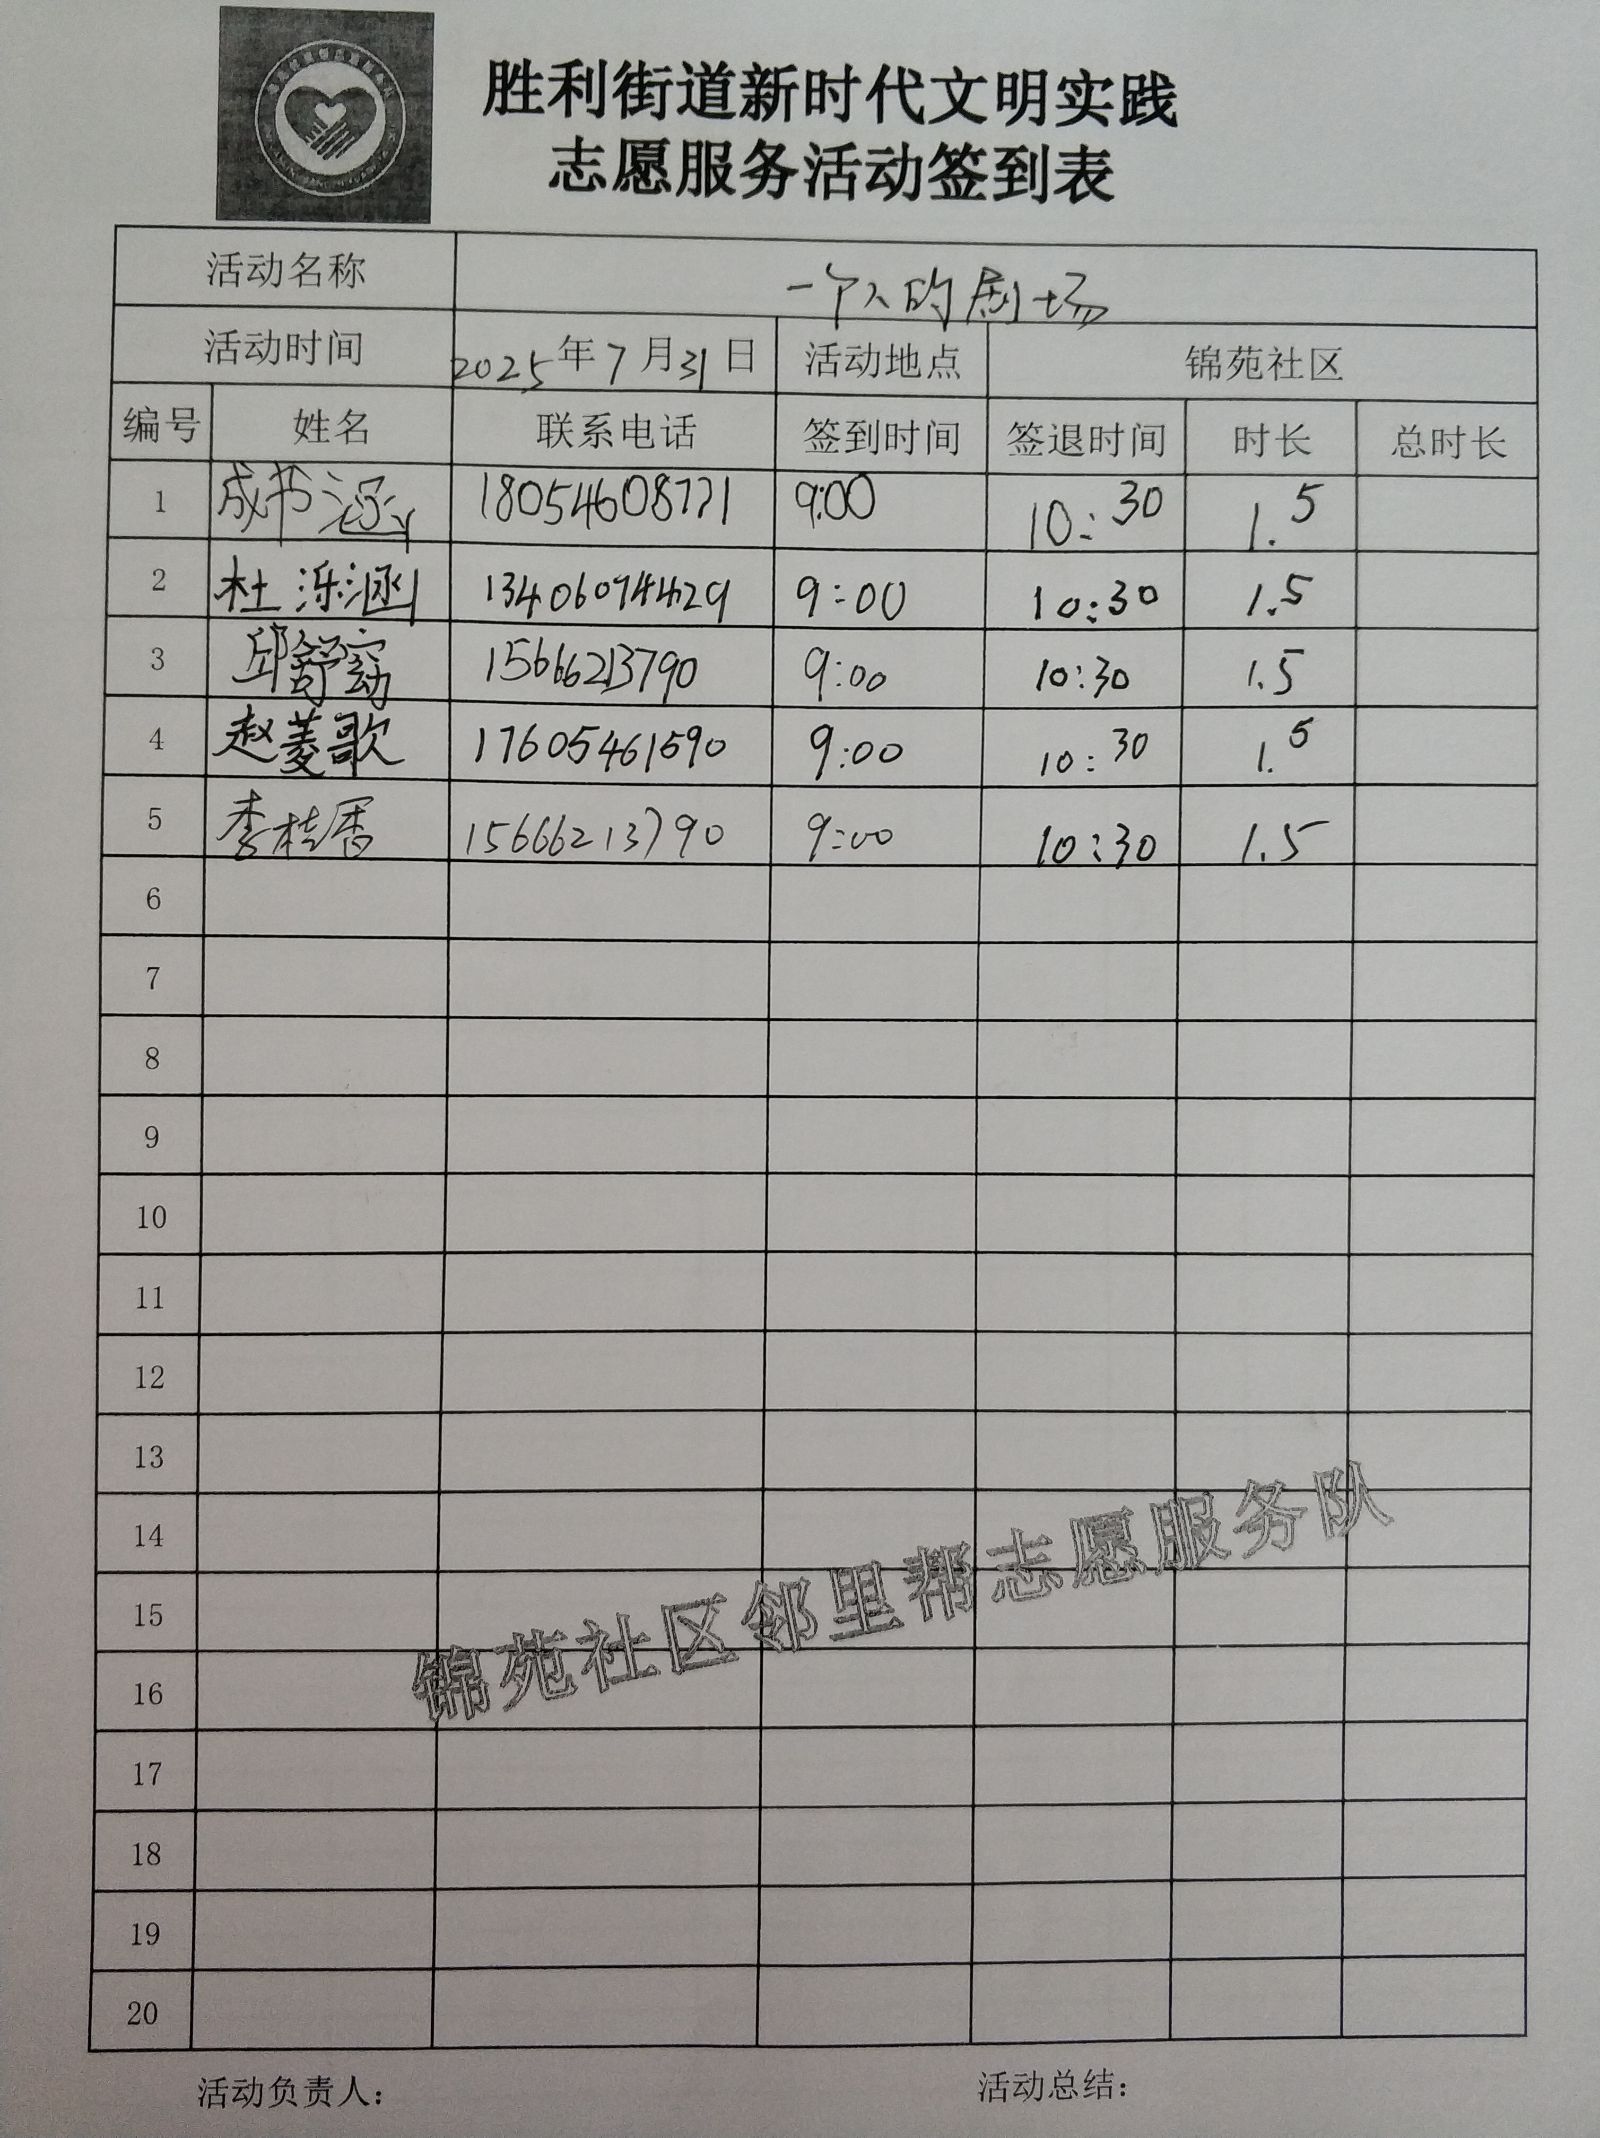 胜利街道新时代文明实践
志愿服务活动签到表
活动名称 一个人的剧场
活动时间 2025年7月31日 活动地点 锦苑社区
编号 姓名 联系电话 签到时间 签退时间 时长 总时长
1 成书涵 18054608771 9:00 10:30 1.5
2 杜泺涵 13406074429 9:00 10:30 1.5
3 邱舒窈 15666213790 9:00 10:30 1.5
4 赵菱歌 17605461590 9:00 10:30 1.5
5 李桂香 15666213790 9:00 10:30 1.5
6
7
8
9
10
11
12
13
14
15
16
17
18
19
20
锦苑社区邻里帮志愿服务队
活动负责人： 活动总结：